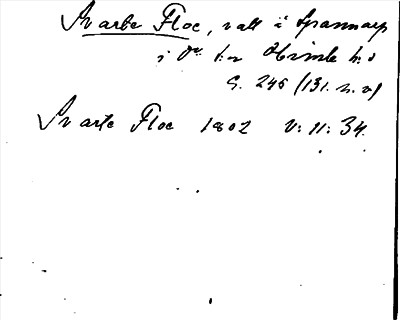 Svarte Floe, vall i Spannarp
i Ou sn Himle hd
S. 246 (131. n. v)
Svarte Floe 1802 V: 11: 34.